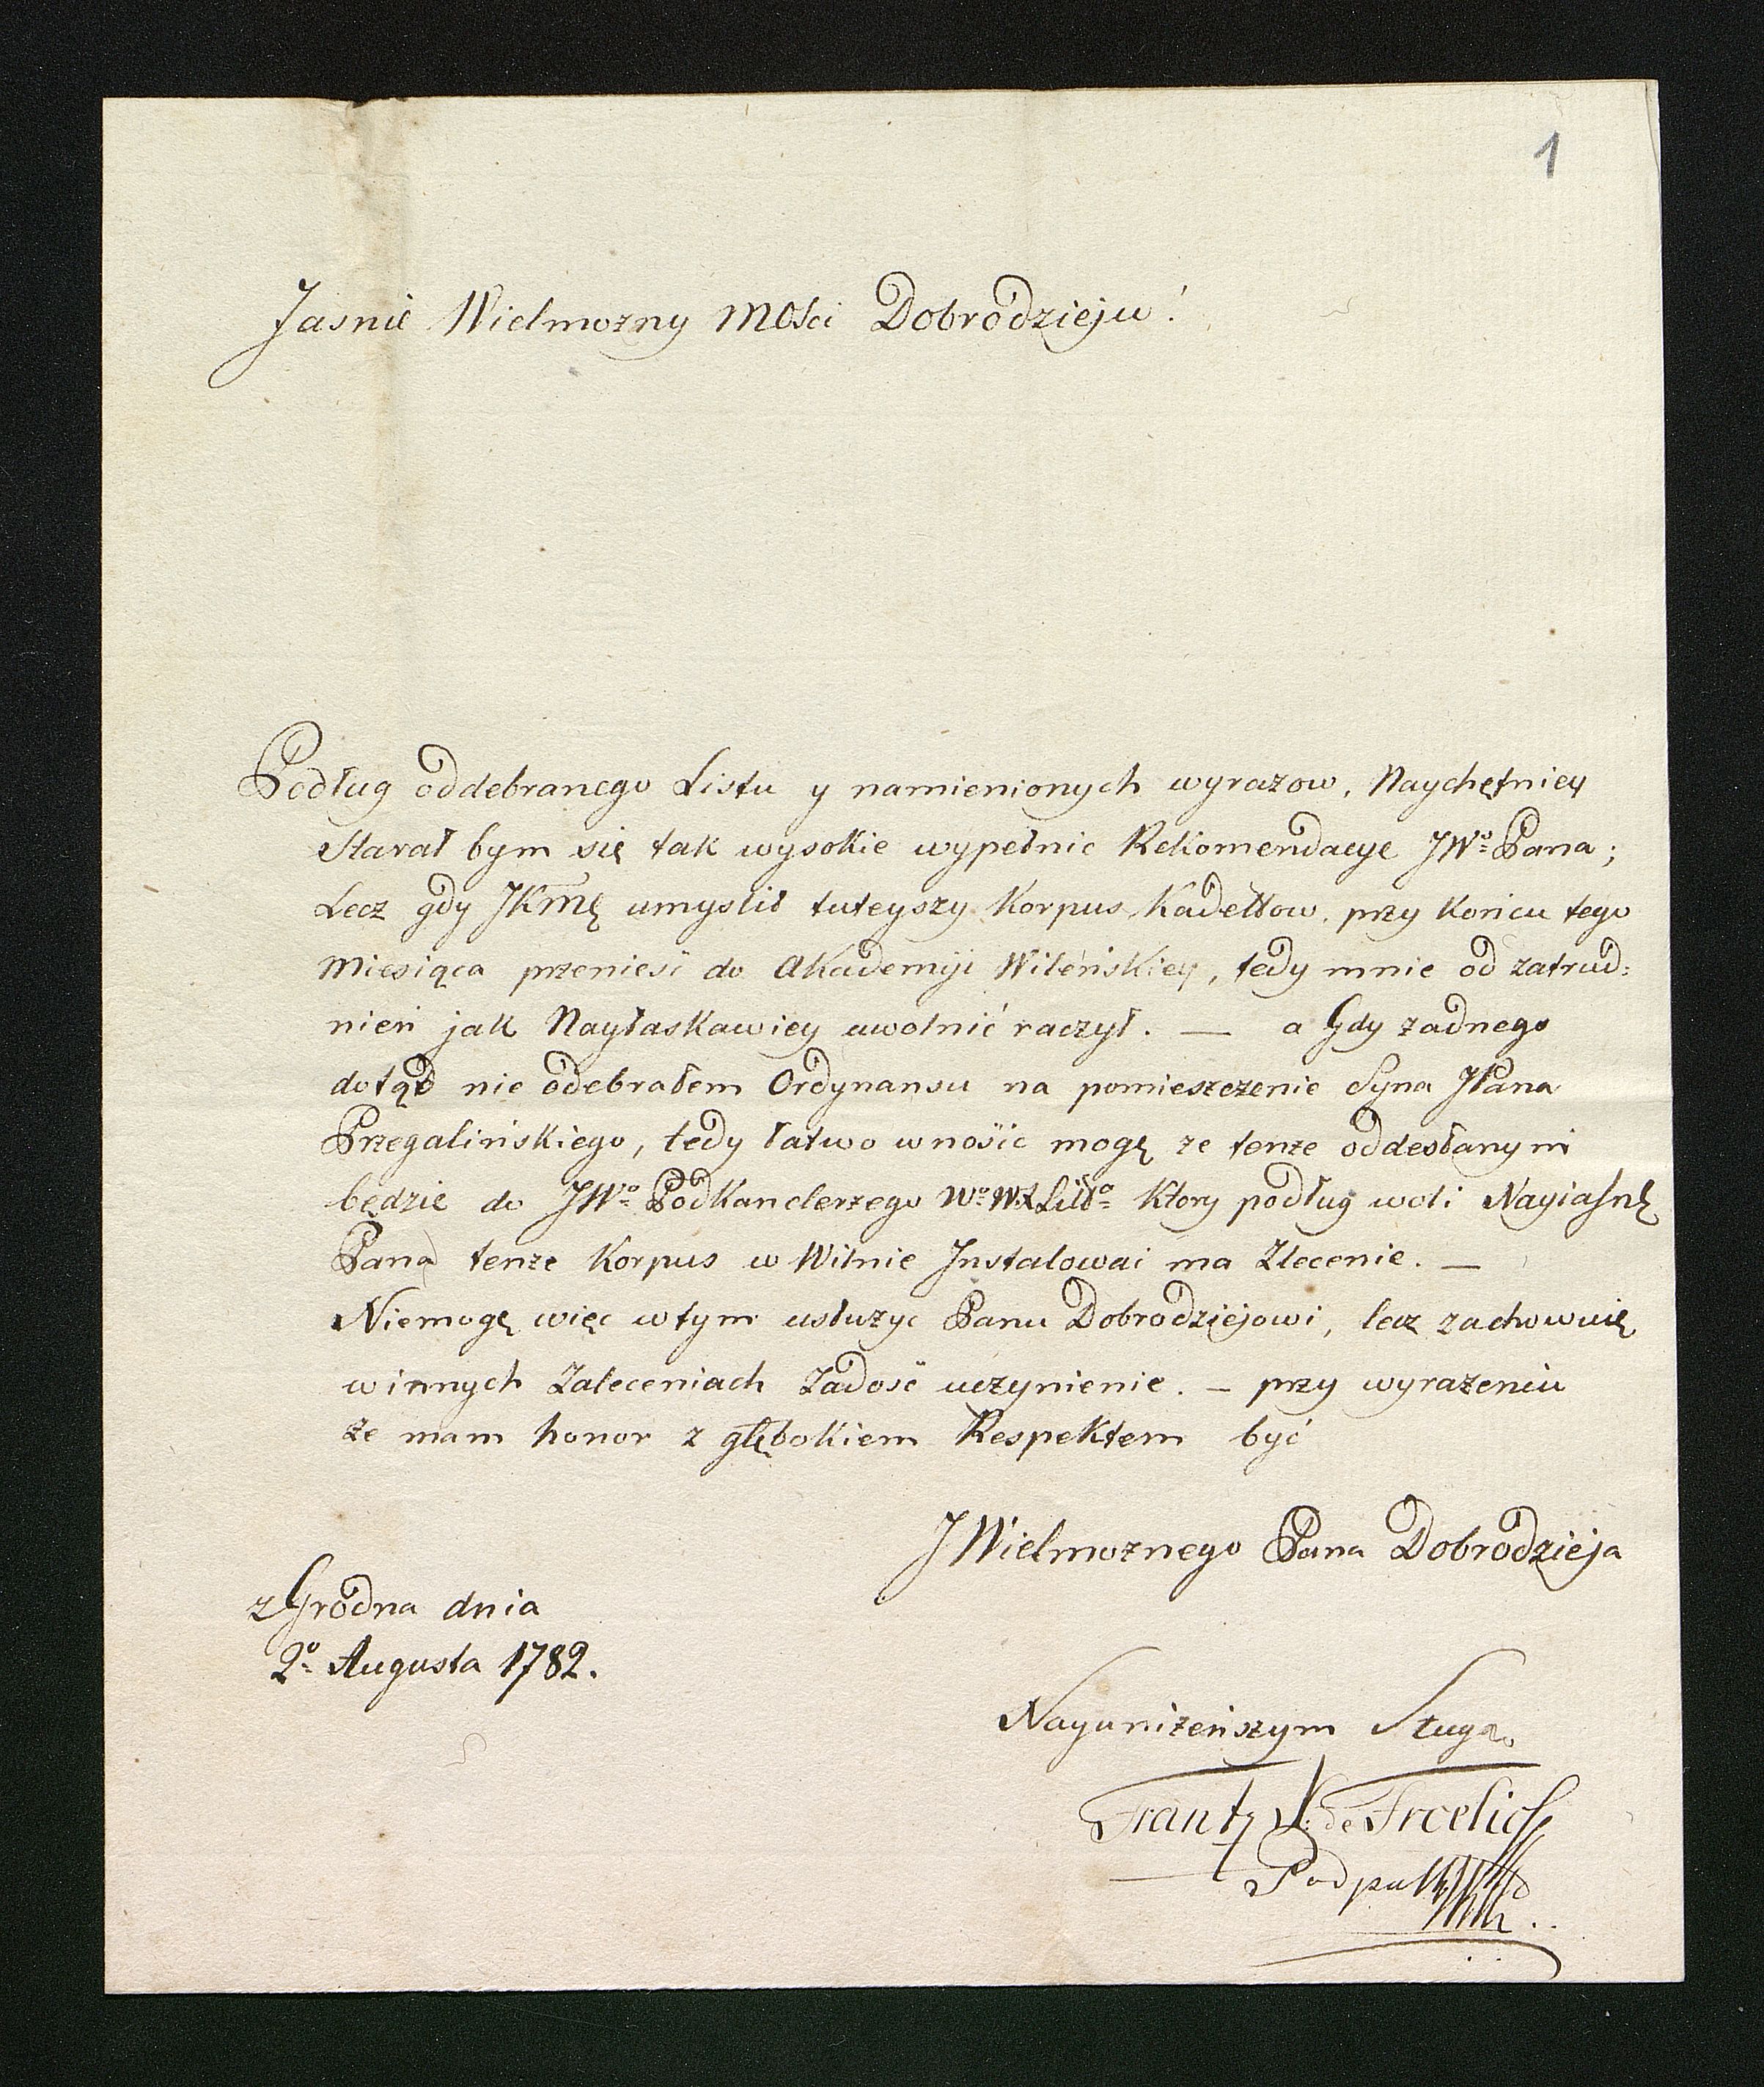 1
Jasnie Wielmozny MOsci Dobrodzieju!
Podług oddebranego Listu y namienionych wyrazow, Naychętniey
Starał bym się tak wysokie wypełnic Rekomendacye JWº Pana;
Lecz gdy JKmę umyslił tuteyszy Korpus Kadettow, przy Końcu tego
Miesiąca przenieść do Akademiji Wileńskiey, tedy mnie od zatrud:
nień jak Nayłaskawiey uwolnić raczył. — a Gdy zadnego
dotąd nie odebrałem Ordynansu na pomieszczenie Syna JPana
Przegalińskiego, tedy łatwo wnośic mogę ze tenże oddesłanym
będzie do JWº PodKanclerzego Wº W.X Littº Ktory podług woli Nayiaśnę
Pana tenże Korpus w Wilnie Instalowai ma Zlecenie. —
Niemogę więc w tym usłużyc Panu Dobrodziejowi, lecz zachowuię
w innych Zaleceniach Zadość uczynienie. — przy wyrażeniu
że mam honor z głębokiem Respektem być
JWielmoznego Pana Dobrodzieja
z Grodna dnia
2º Augusta 1782.
Nayuniżeńszym Sługą
Frantz X: de Froelich